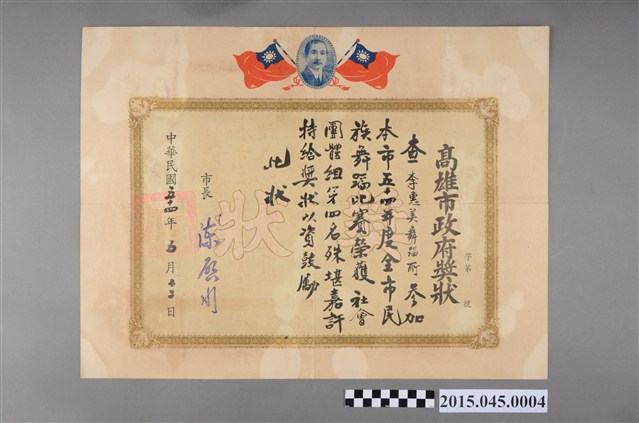 高雄市政府獎狀
字第 號
查李惠美舞蹈所參加
本市五十四年度全市民
族舞蹈比賽榮獲社會
團體組第四名殊堪嘉許
特給獎狀以資鼓勵
此狀
市長 陳啓川
中華民國五十四年五月十二日
獎狀
2015.045.0004